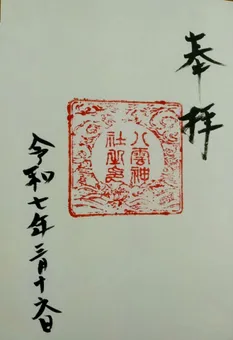 奉拝
八雲神
社印
令和七年三月十六日